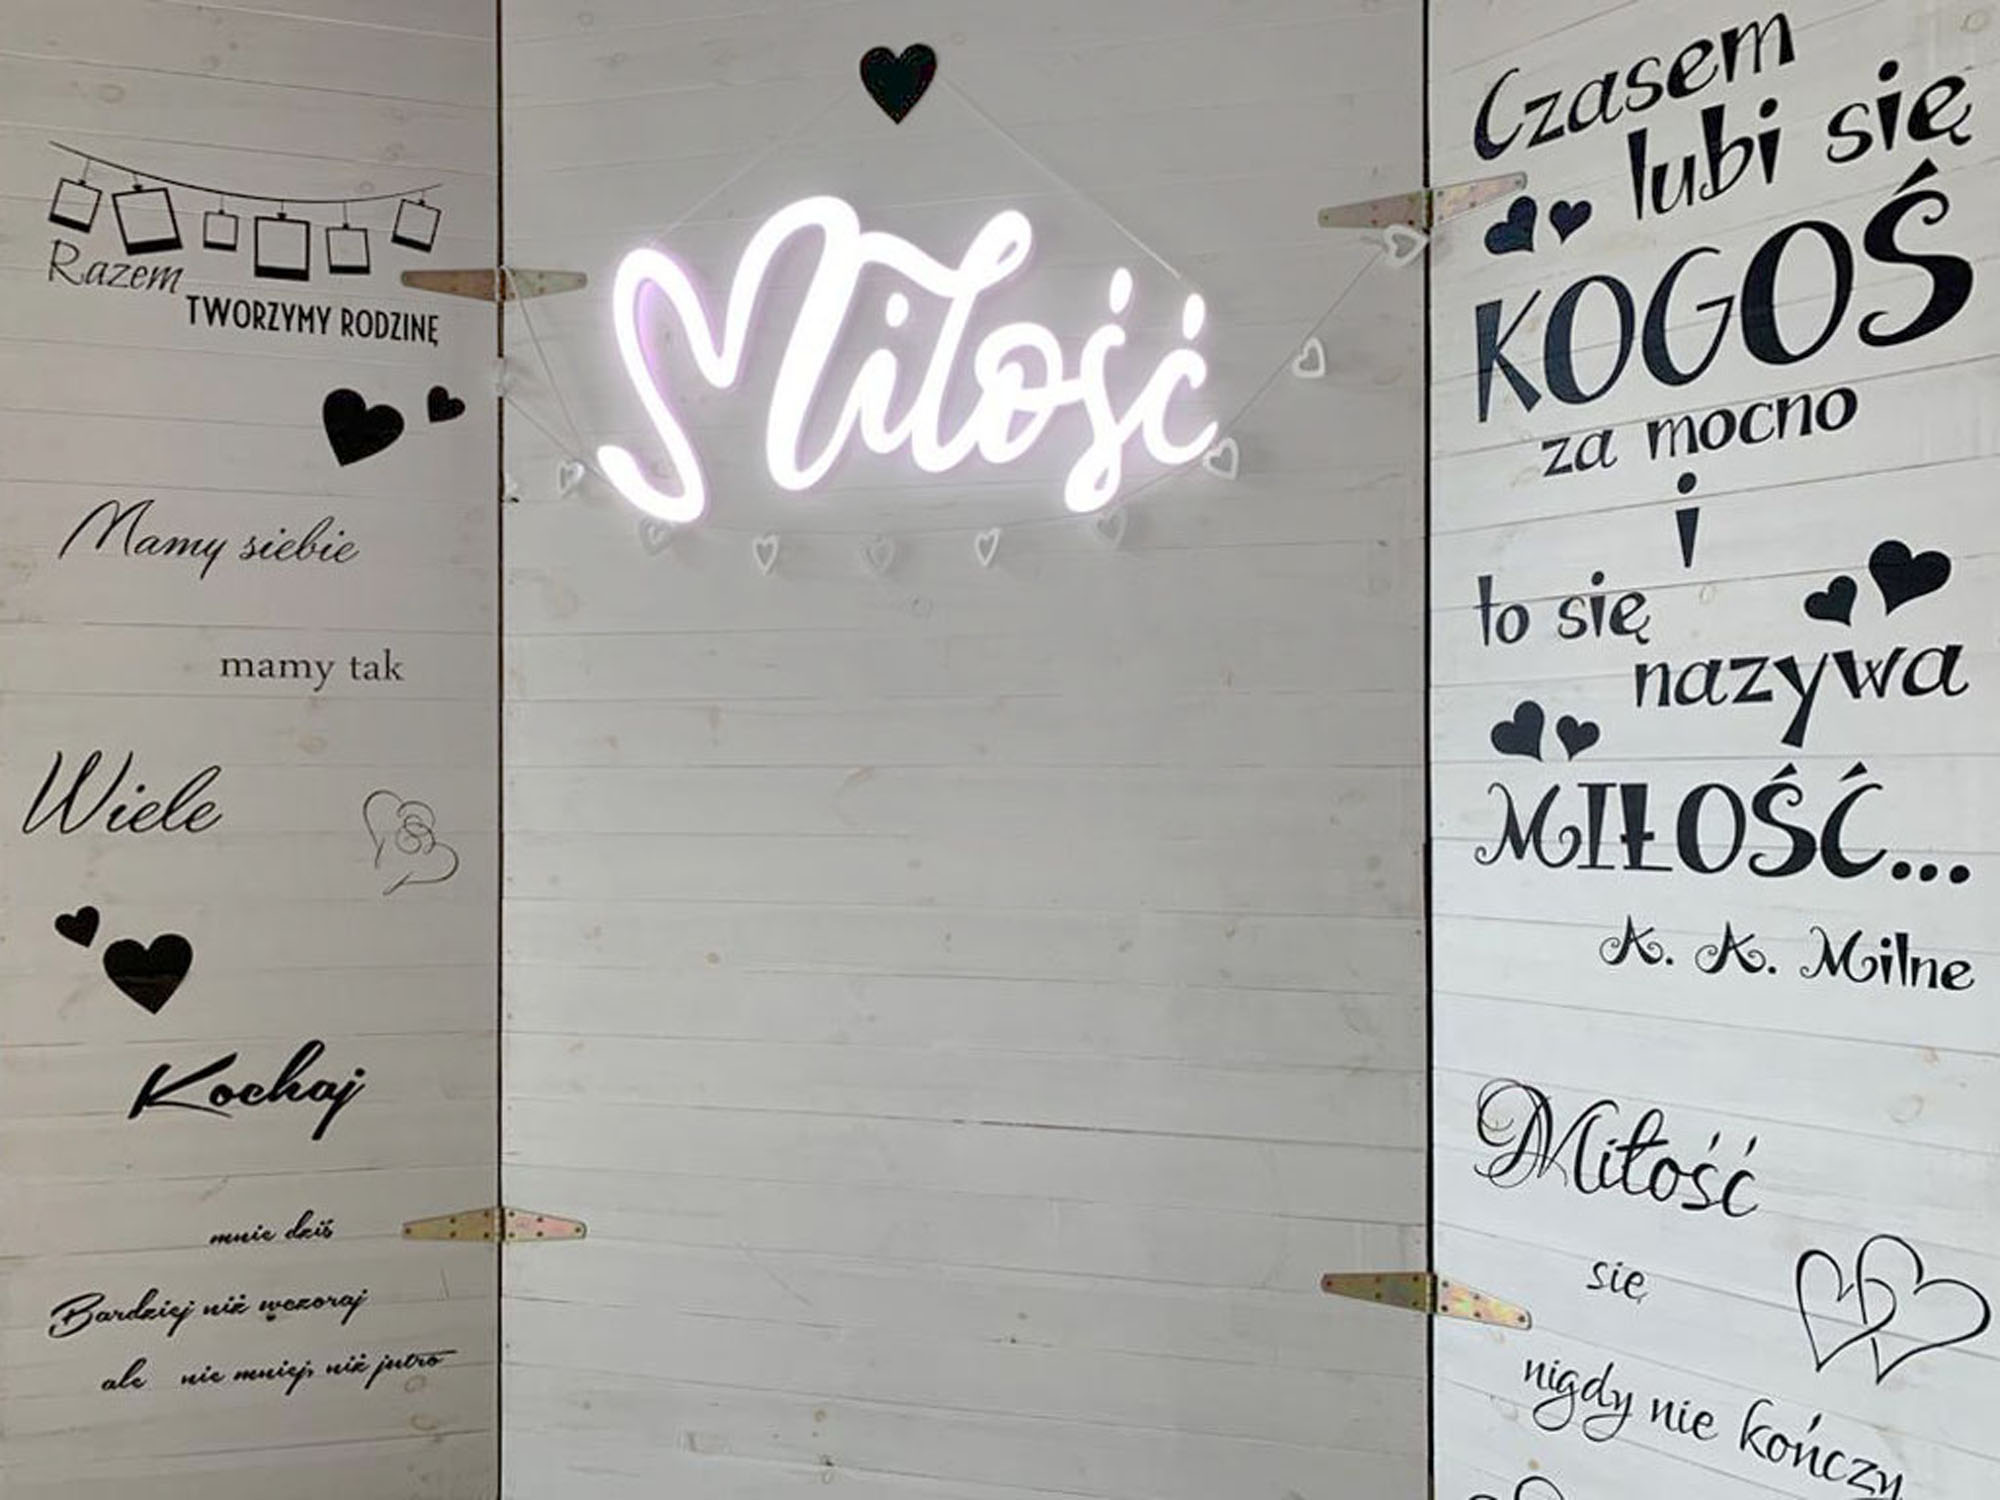 Razem
TWORZYMY RODZINĘ
Mamy siebie
mamy tak
Wiele
Kochaj
mnie dziś
Bardziej niż wczoraj
ale nie mniej, niż jutro
Miłość
Czasem
lubi się
KOGOŚ
za mocno
i
to się
nazywa
MIŁOŚĆ...
A. A. Milne
Miłość
się
nigdy nie kończy